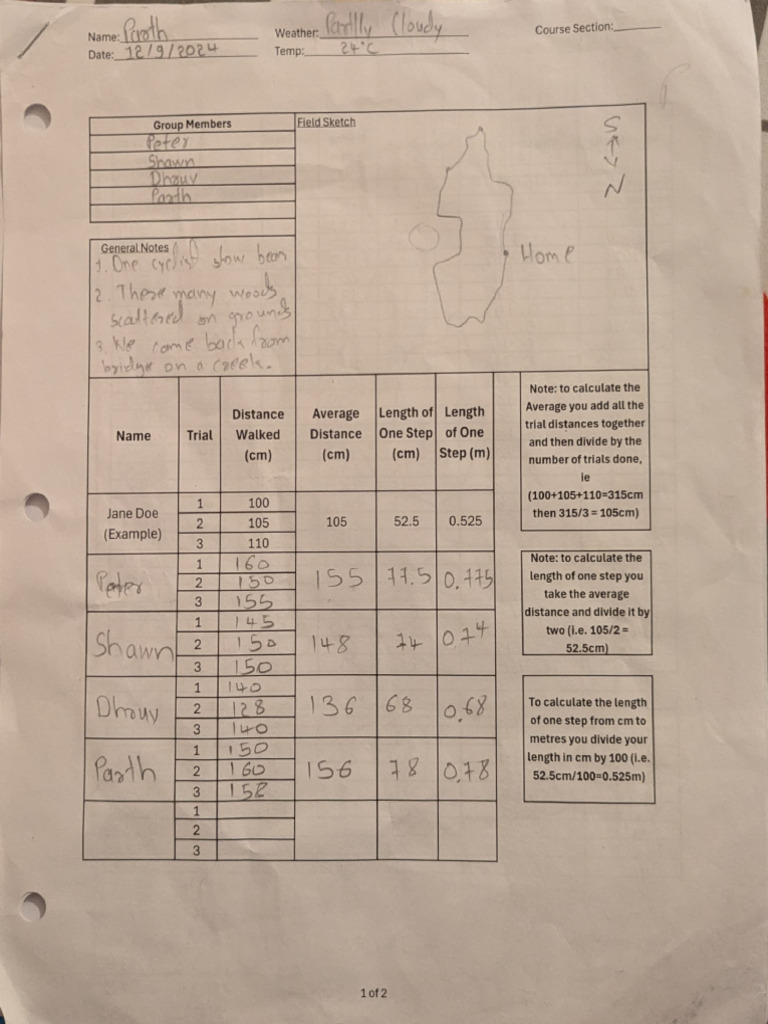 Name: Parth
Weather: Partlly Cloudy
Course Section:
Date: 12/9/2024
Temp: 24°C
Group Members
Peter
Shawn
Dhruv
Parth
Field Sketch
S
N
Home
General Notes
1. One cyclist show been
2. These many woods
scattered on grounds
3. We come back from
bridge on a creek.
Name Trial Distance Walked (cm) Average Distance (cm) Length of One Step (cm) Length of One Step (m)
Jane Doe (Example) 1 100 105 52.5 0.525
2 105
3 110
Peter 1 160 155 77.5 0.775
2 150
3 155
Shawn 1 145 148 74 0.74
2 150
3 150
Dhruv 1 140 136 68 0.68
2 128
3 140
Parth 1 150 156 78 0.78
2 160
3 158
1
2
3
Note: to calculate the
Average you add all the
trial distances together
and then divide by the
number of trials done,
ie
(100+105+110=315cm
then 315/3 = 105cm)
Note: to calculate the
length of one step you
take the average
distance and divide it by
two (i.e. 105/2 =
52.5cm)
To calculate the length
of one step from cm to
metres you divide your
length in cm by 100 (i.e.
52.5cm/100=0.525m)
1 of 2